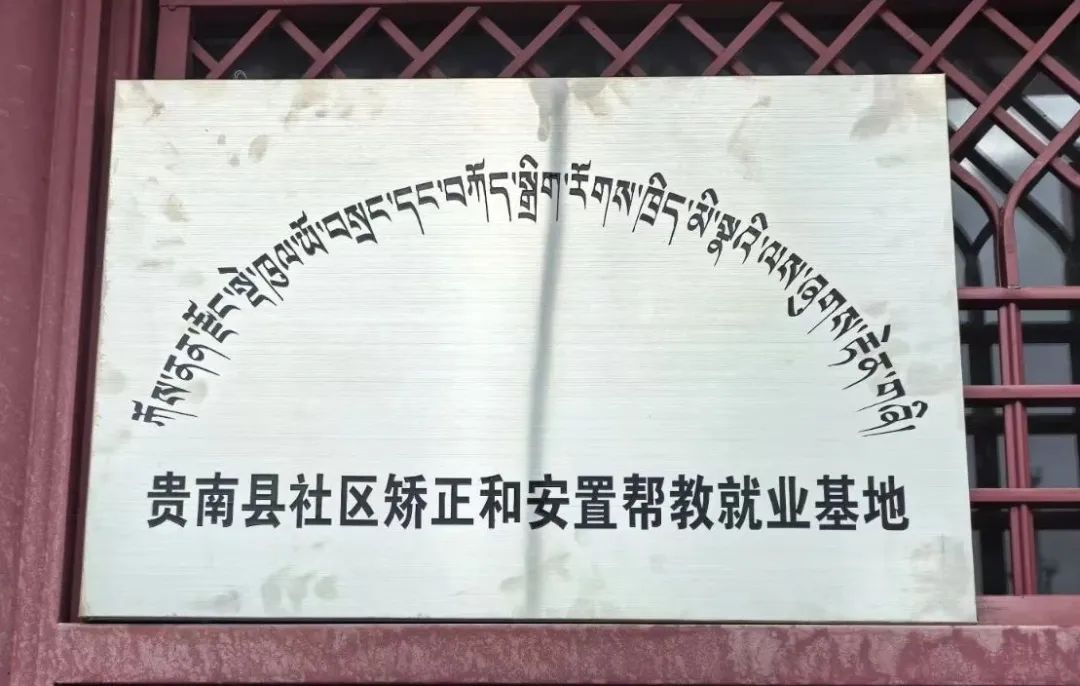 ཀོས་ནན་རྫོང་སྡེ་ཁུལ་ཡོ་བསྲང་དང་བཀོད་སྒྲིག་རོགས་ཁྲིད་མི་སྣའི་ལས་ཞུགས་རྟེན་གཞི།
贵南县社区矫正和安置帮教就业基地